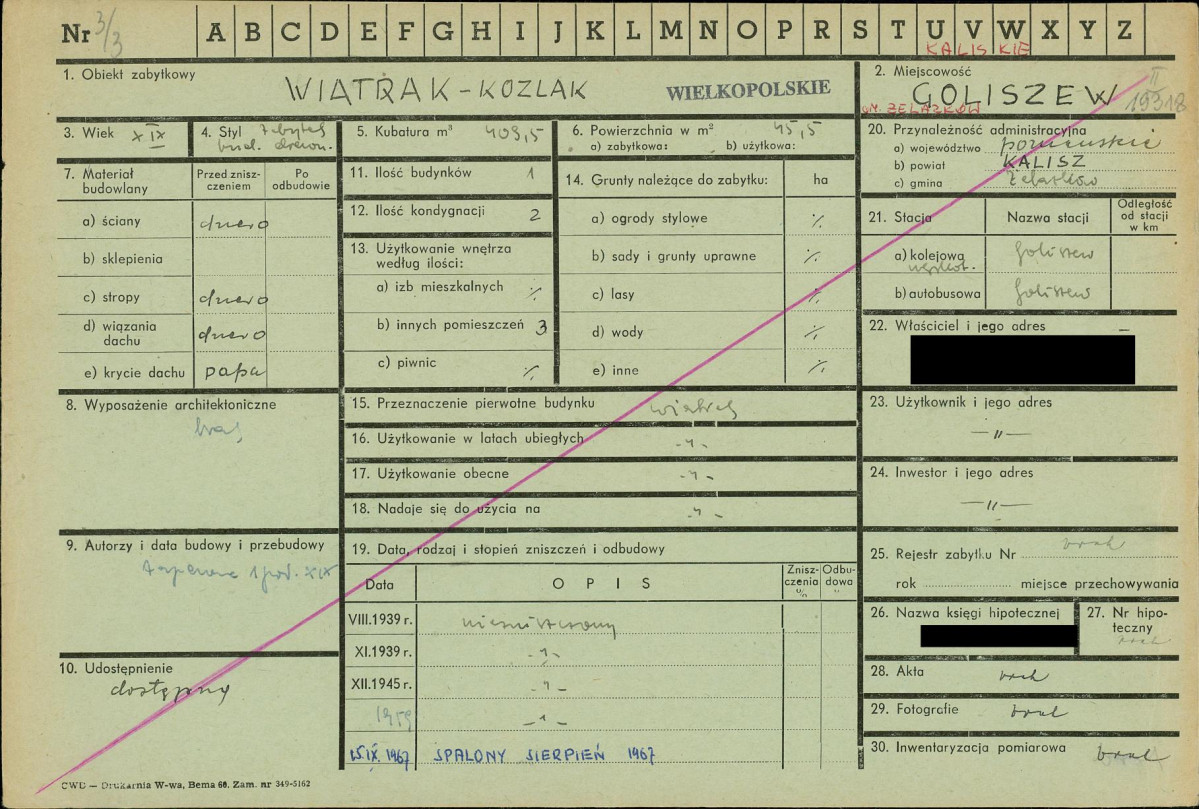 Nr 3/3 A B C D E F G H I J K L M N O P R S T U V W X Y Z
KALISKIE
1. Obiekt zabytkowy
WIATRAK-KOZLAK
WIELKOPOLSKIE
2. Miejscowość
GOLISZEW
gm. ŻELAZKÓW
3. Wiek XIX
4. Styl zabytek bud. drewn.
5. Kubatura m³ 409,5
6. Powierzchnia w m² 45,5
a) zabytkowa: b) użytkowa:
7. Materiał budowlany
Przed znisz-czeniem
Po odbudowie
a) ściany drewno
b) sklepienia
c) stropy drewno
d) wiązania dachu drewno
e) krycie dachu papa
8. Wyposażenie architektoniczne
brak
9. Autorzy i data budowy i przebudowy
1 poł. XIX
10. Udostępnienie
dostępny
11. Ilość budynków 1
12. Ilość kondygnacji 2
13. Użytkowanie wnętrza według ilości:
a) izb mieszkalnych %
b) innych pomieszczeń 3
c) piwnic %
14. Grunty należące do zabytku: ha
a) ogrody stylowe %
b) sady i grunty uprawne %
c) lasy %
d) wody %
e) inne %
15. Przeznaczenie pierwotne budynku wiatrak
16. Użytkowanie w latach ubiegłych -"-
17. Użytkowanie obecne -"-
18. Nadaje się do użycia na -"-
19. Data, rodzaj i stopień zniszczeń i odbudowy
Data
OPIS
Znisz-czenia %
Odbu-dowa
VIII.1939 r. niezniszczony
XI.1939 r. -"-
XII.1945 r. -"-
1959 -"-
15.IX.1967 SPALONY SIERPIEŃ 1967
20. Przynależność administracyjna
a) województwo poznańskie
b) powiat KALISZ
c) gmina Żelazków
21. Stacja
Nazwa stacji
Odległość od stacji w km
a) kolejowa wąskot. Goliszew
b) autobusowa Goliszew
22. Właściciel i jego adres
23. Użytkownik i jego adres
-"-
24. Inwestor i jego adres
-"-
25. Rejestr zabytku Nr brak
rok miejsce przechowywania
26. Nazwa księgi hipotecznej
27. Nr hipo-teczny brak
28. Akta brak
29. Fotografie brak
30. Inwentaryzacja pomiarowa brak
CWD — Drukarnia W-wa, Bema 60. Zam. nr 349-5162